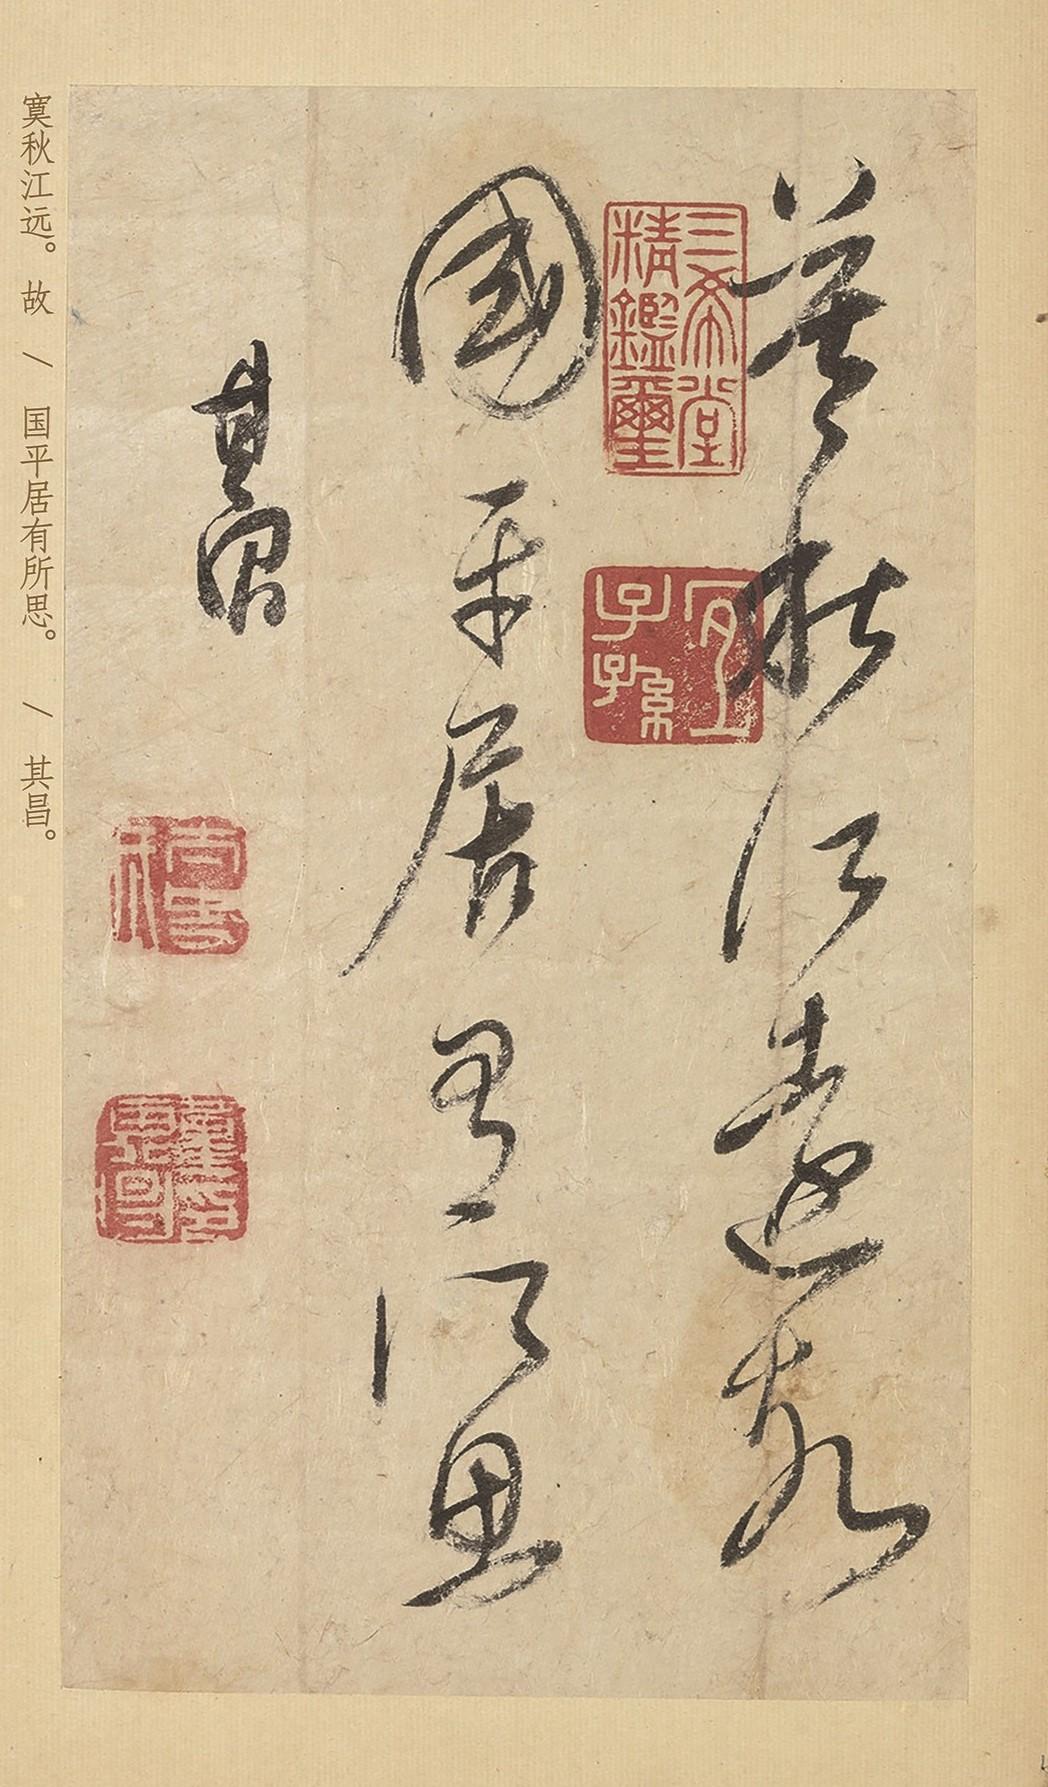 寞秋江遠故
國平居有所思
其昌
三希堂
精鑑璽
宜
子孫
寞秋江远。故 / 国平居有所思。 / 其昌。